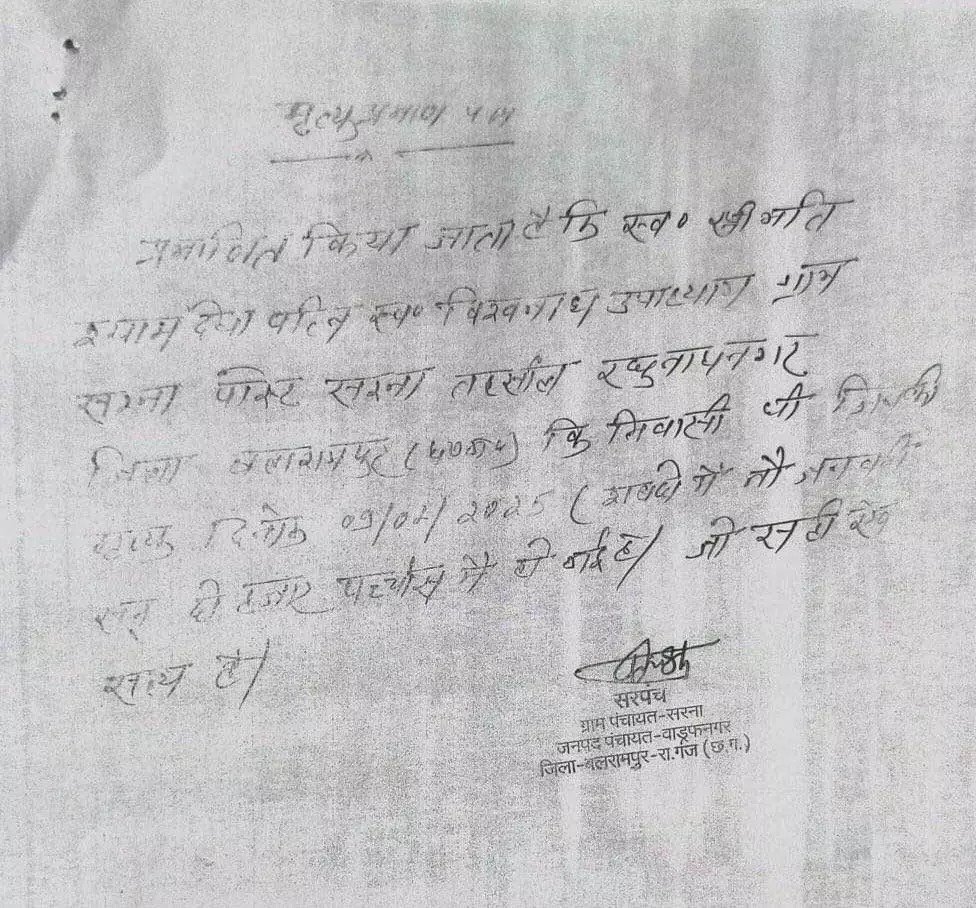 मृत्यु प्रमाण पत्र
प्रमाणित किया जाता है कि स्व० श्रीमति
श्याम देवी पत्नि स्व० विश्वनाथ उपाध्याय ग्राम
सरना पोस्ट सरना तहसील रघुनाथनगर
जिला बलरामपुर (छ०ग०) कि निवासी थी जिनकी
मृत्यु दिनांक 09/01/2025 (शब्दो में नौ जनवरी
सन् दो हजार पच्चीस में हो गई है। जो सही एवं
सत्य है।
सरपंच
ग्राम पंचायत-सरना
जनपद पंचायत-वाड्रफनगर
जिला-बलरामपुर-रा.गंज (छ.ग.)